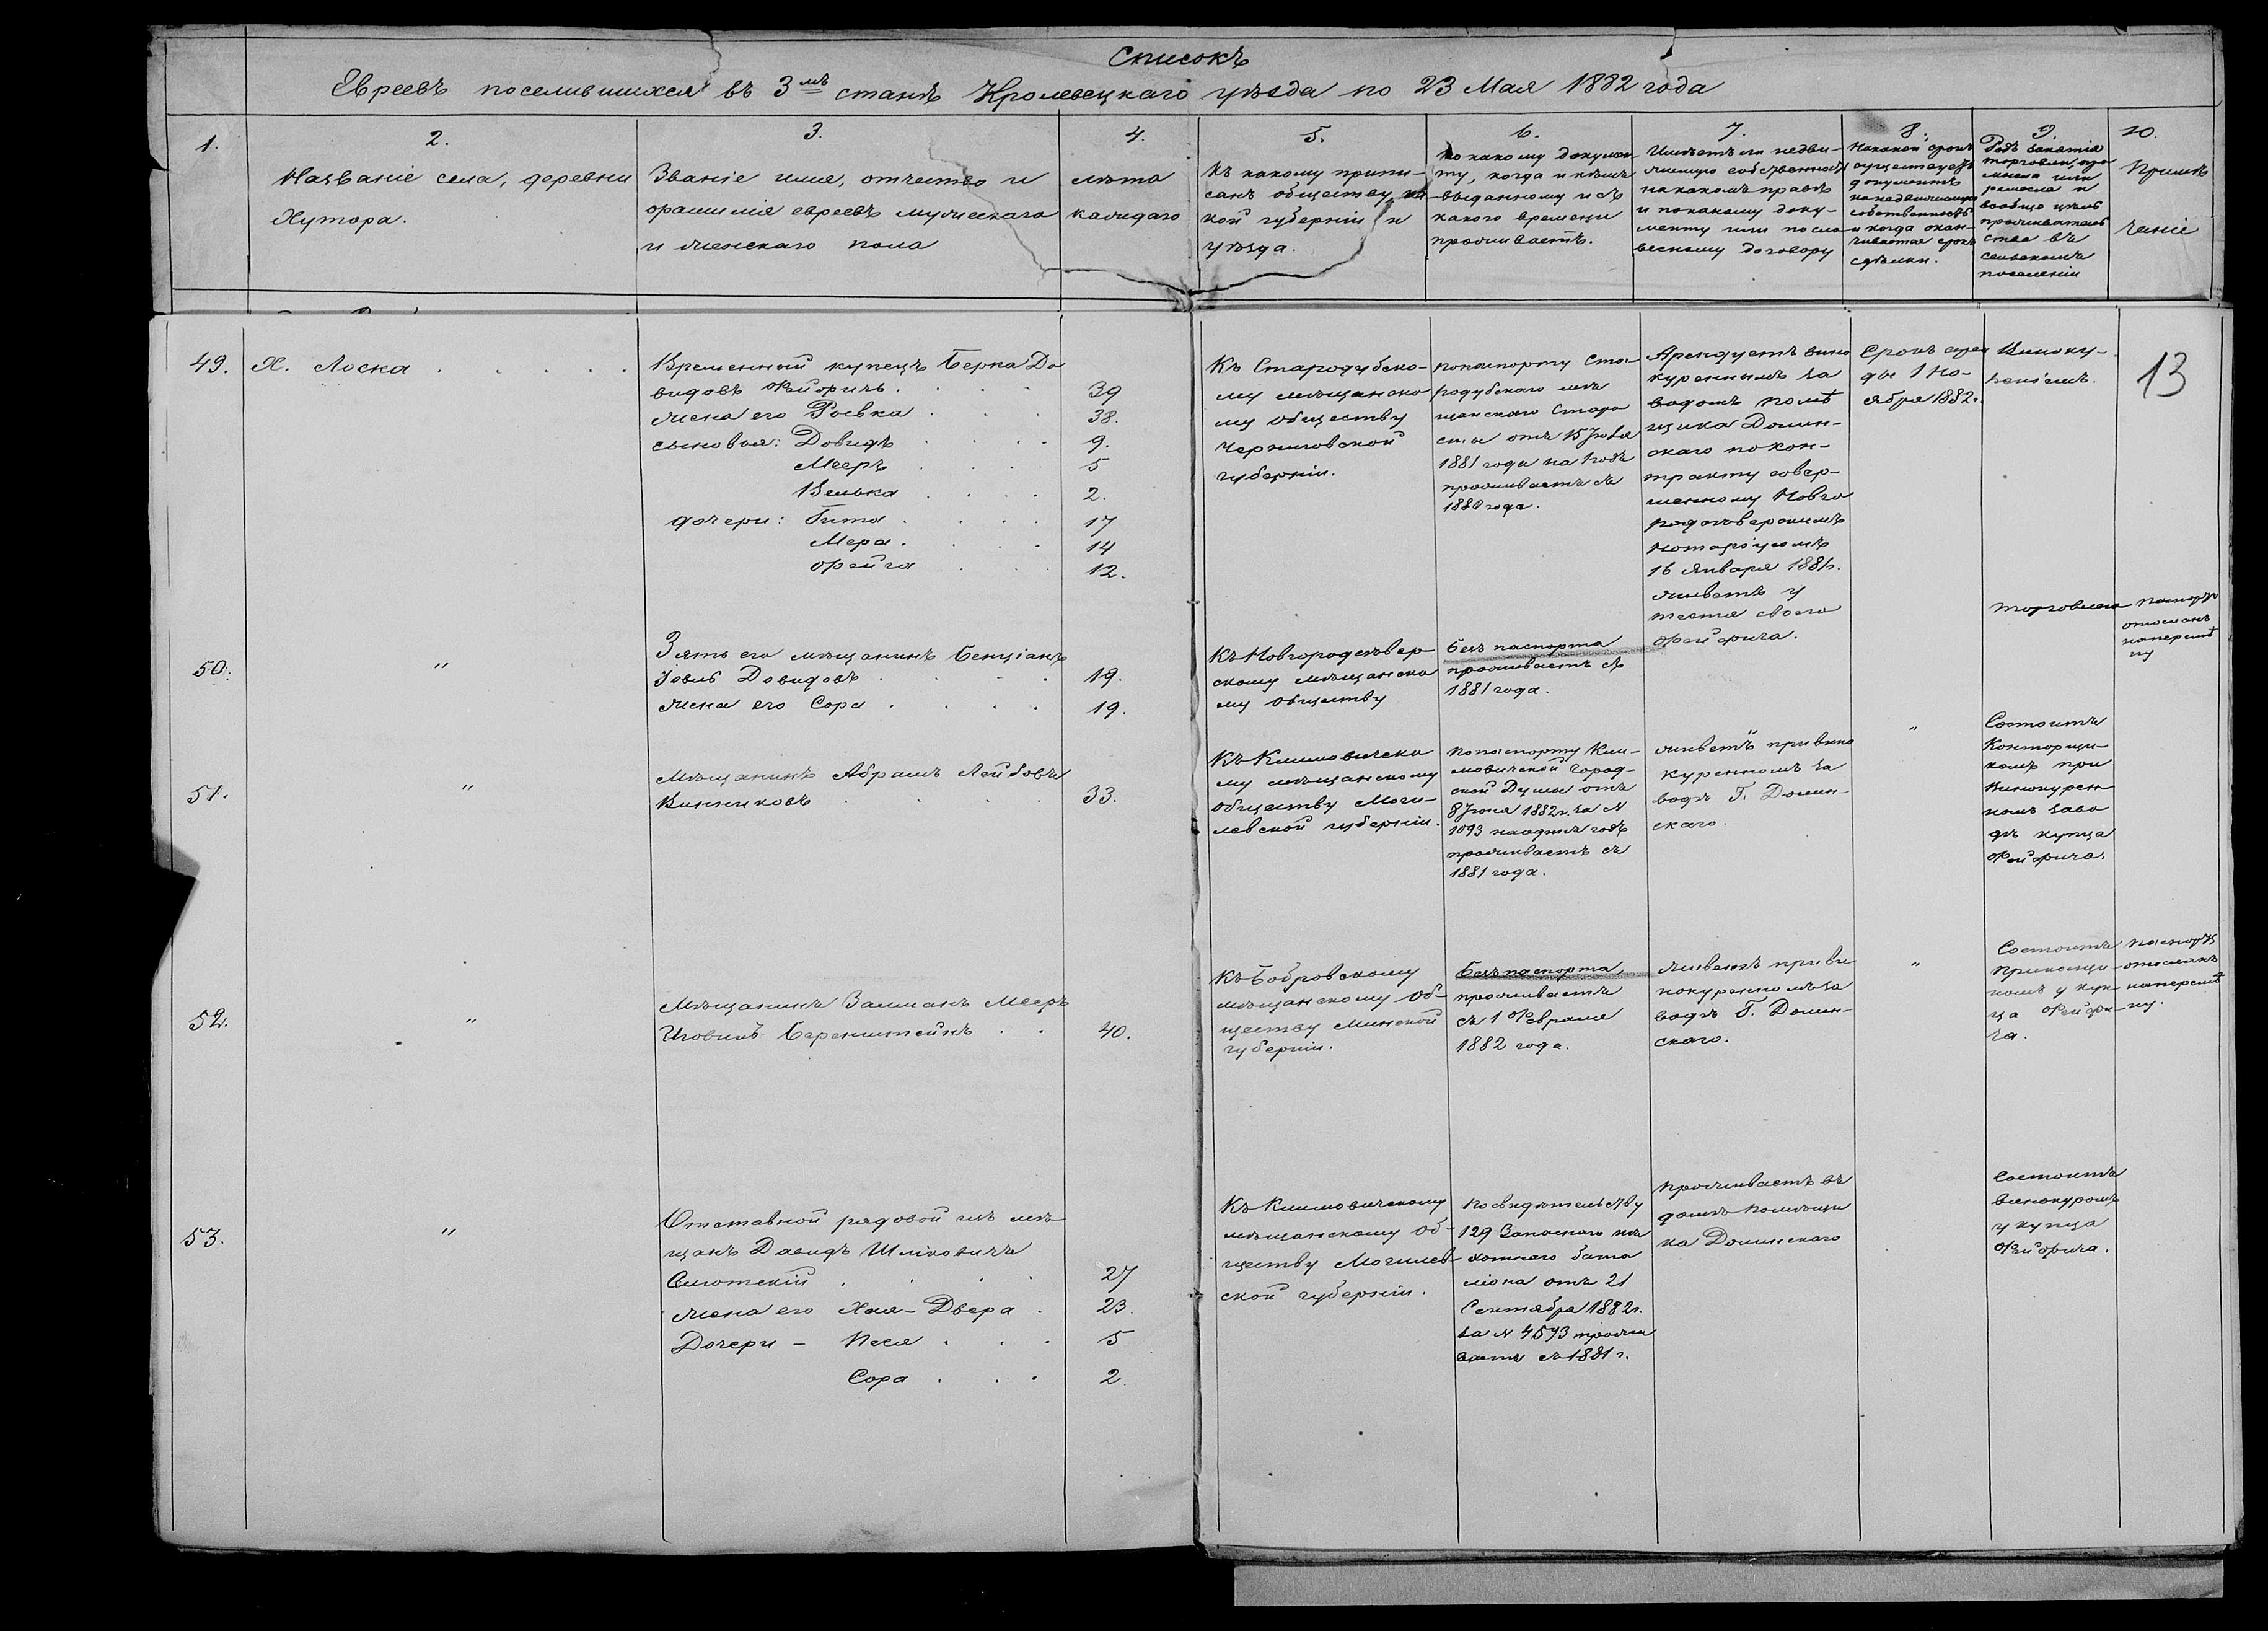 Списокъ
Евреевъ поселившихся въ 3мъ станѣ Кролевецкаго уѣзда по 23 Мая 1882 года
1.
2.
Названіе села, деревни
Хутора.
3.
Званіе имя, отчество и
фамилія евреевъ мужескаго
и женскаго пола
4.
лѣта
каждаго
5.
Къ какому припи-
санъ обществу, ка
кой губерніи и
уѣзда.
6.
По какому докумен-
ту, когда и кѣмъ
выданному и съ
какого времени
проживаетъ.
7.
Имѣетъ ли недви-
жимую собственность
на какомъ правѣ
и по какому доку-
менту или по сло-
весному договору
8.
На какой срокъ
существуетъ
документъ
на недвижимую
собственность
и когда окан-
чивается срокъ
сдѣлки.
9.
Родъ занятія
торговли, про
мысла или
ремесла и
вообще цѣль
прожиательс
ства въ
сельскомъ
поселеніи
10.
Примѣ
чаніе
13
49. Х. Лоска
Временный купецъ Берка До
видовъ Фейфичъ 39
жена его Ровка 38.
сыновья: Довидъ 9.
Мееръ 5
Велька 2.
дочери: Гита 17
Мера 14
Фейга 12.
Къ Стародубско-
му мѣщанско
му обществу
Черниговской
губерніи.
По паспорту Ста-
родубскаго мѣ
щанскаго Старо
сты отъ 15 Іюля
1881 года на годъ
проживаетъ съ
1880 года.
Арендуетъ вино
куреннымъ за
водомъ помѣ
щика Долин-
скаго по кон-
тракту совер-
шенному Новго
родсѣверскимъ
Нотаріусомъ
16 Января 1881г.
Срокъ арен
ды 1 Но-
ября 1882г.
Виноку-
реніемъ.
50. "
Зять его мѣщанинъ Бенціанъ
Іовинъ Довидовъ 19.
жена его Сора 19.
Къ Новгородсѣвер-
скому мѣщанско
му обществу
безъ паспорта
проживаетъ съ
1881 года.
живетъ у
тестя своего
Фейфича.
торговлею
паспортъ
отосланъ
на перемѣ
ну
51. "
Мѣщанинъ Абрамъ Лейбовъ
Винниковъ 33.
Къ Климовичско
му мѣщанскому
обществу Моги-
левской губерніи.
По паспорту Кли-
мовичской Город-
ской Думы отъ
8 Іюня 1882 г. за №
1093 на одинъ годъ
проживаетъ съ
1881 года.
живетъ при вино
куренномъ за
водѣ Г. Долин-
скаго
"
Состоитъ
Конторщи-
комъ при
Винокурен
номъ заво
дѣ купца
Фейфича.
52. "
Мѣщанинъ Залманъ Мееръ
Беренштейнъ 40.
Къ Бобровскому
мѣщанскому об-
ществу Минской
губерніи.
Безъ паспорта,
проживаетъ
съ 1 Февраля
1882 года.
живетъ при ви
нокуренномъ за
водѣ Г. Долин-
скаго.
"
Состоитъ
прикащи-
комъ у куп-
ца Фейфи-
ча.
паспортъ
отосланъ
на перемѣ
ну.
53. "
Отставной рядовой изъ мѣ-
щанъ Давидъ
27
жена его Хая-Двера 23.
Дочери - Песя 5
Сора 2.
Къ Климовичскому
мѣщанскому об-
ществу Могилев-
ской губерніи.
По свидѣтельству
129 Запаснаго пѣ
хотнаго бата
ліона отъ 21
Сентября 1882г.
за № 4593 прожи
ваетъ съ 1881 г.
Проживаетъ въ
домѣ помѣщи
ка Долинскаго
"
Состоитъ
винокуромъ
у купца
Фейфича.